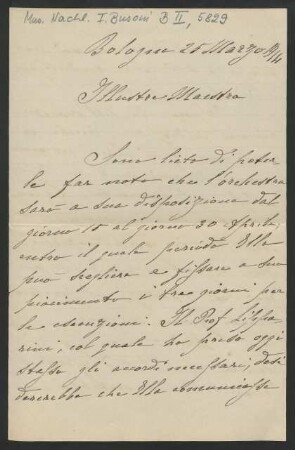 Mus. Nachl. F. Busoni B II, 5829
Bologna 25 Marzo 914
Illustre Maestro
Sono lieto di poter
le far noto che l'orchestra
sarà a sua disposizione dal
giorno 15 al giorno 30 Aprile,
entro il quale periodo Ella
può scegliere e fissare a suo
piacimento i tre giorni per
le esecuzioni. Il Prof.
rini, col quale ho preso oggi
stesso gli accordi necessari, desi
dererebbe che Ella comunicasse